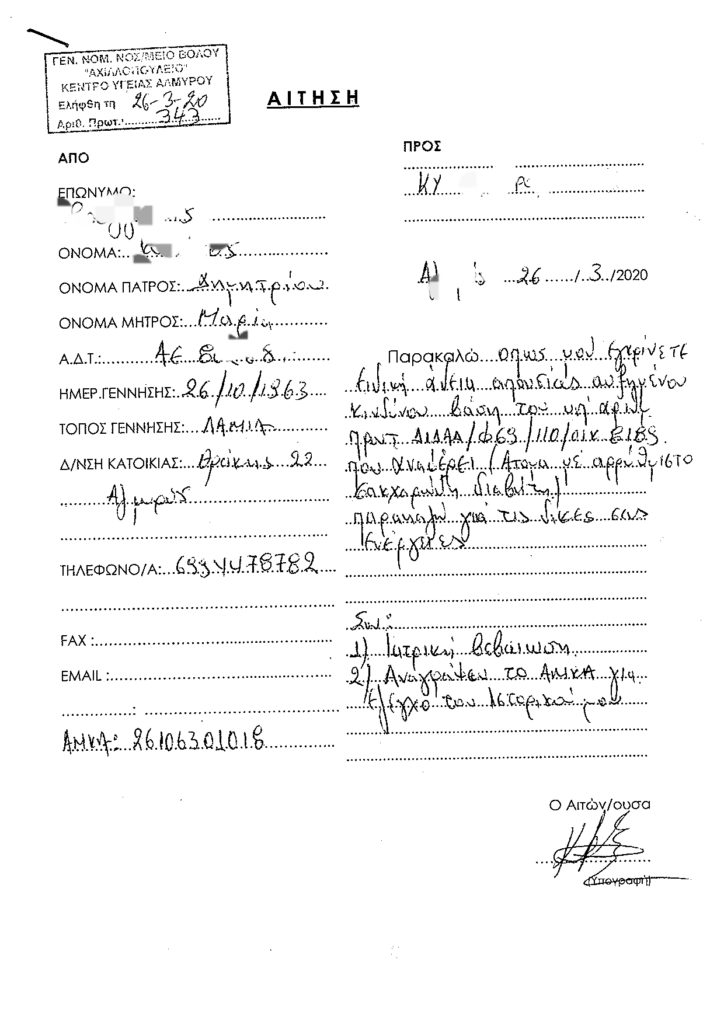 ΓΕΝ. ΝΟΜ. ΝΟΣ/ΜΕΙΟ ΒΟΛΟΥ
"ΑΧΙΛΛΟΠΟΥΛΕΙΟ"
ΚΕΝΤΡΟ ΥΓΕΙΑΣ ΑΛΜΥΡΟΥ
Ελήφθη τη 26-3-20
Αριθ. Πρωτ.: 343
ΑΙΤΗΣΗ
ΑΠΟ
ΕΠΩΝΥΜΟ:
ΟΝΟΜΑ:
ΟΝΟΜΑ ΠΑΤΡΟΣ: Δημητρίου
ΟΝΟΜΑ ΜΗΤΡΟΣ: Μαρία
Α.Δ.Τ.: ΑΕ
ΗΜΕΡ.ΓΕΝΝΗΣΗΣ: 26/10/1963
ΤΟΠΟΣ ΓΕΝΝΗΣΗΣ: ΛΑΜΙΑ
Δ/ΝΣΗ ΚΑΤΟΙΚΙΑΣ: Θράκης 22
Αλμυρός
ΤΗΛΕΦΩΝΟ/Α: 6994478782
FAX :
EMAIL :
:
ΑΜΚΑ: 26106301018
ΠΡΟΣ
ΚΥ
26 / 3 /2020
Παρακαλώ όπως μου εγκρίνετε
Ειδική άδεια απουσίας αυξημένου
κινδύνου βάση του υπ αριθ
πρωτ ΔΙΔΑΔ/Φ69/110/οικ 8189
που αναφέρει (Άτομα με αρρύθμιστο
σακχαρώδη διαβήτη)
παρακαλώ για τις δικές σας
Ενέργειες
Συν:
1) Ιατρική βεβαίωση
2) Αναγράφεται το ΑΜΚΑ για
έλεγχο του Ιστορικού μου
Ο Αιτών/ουσα
(Υπογραφή)